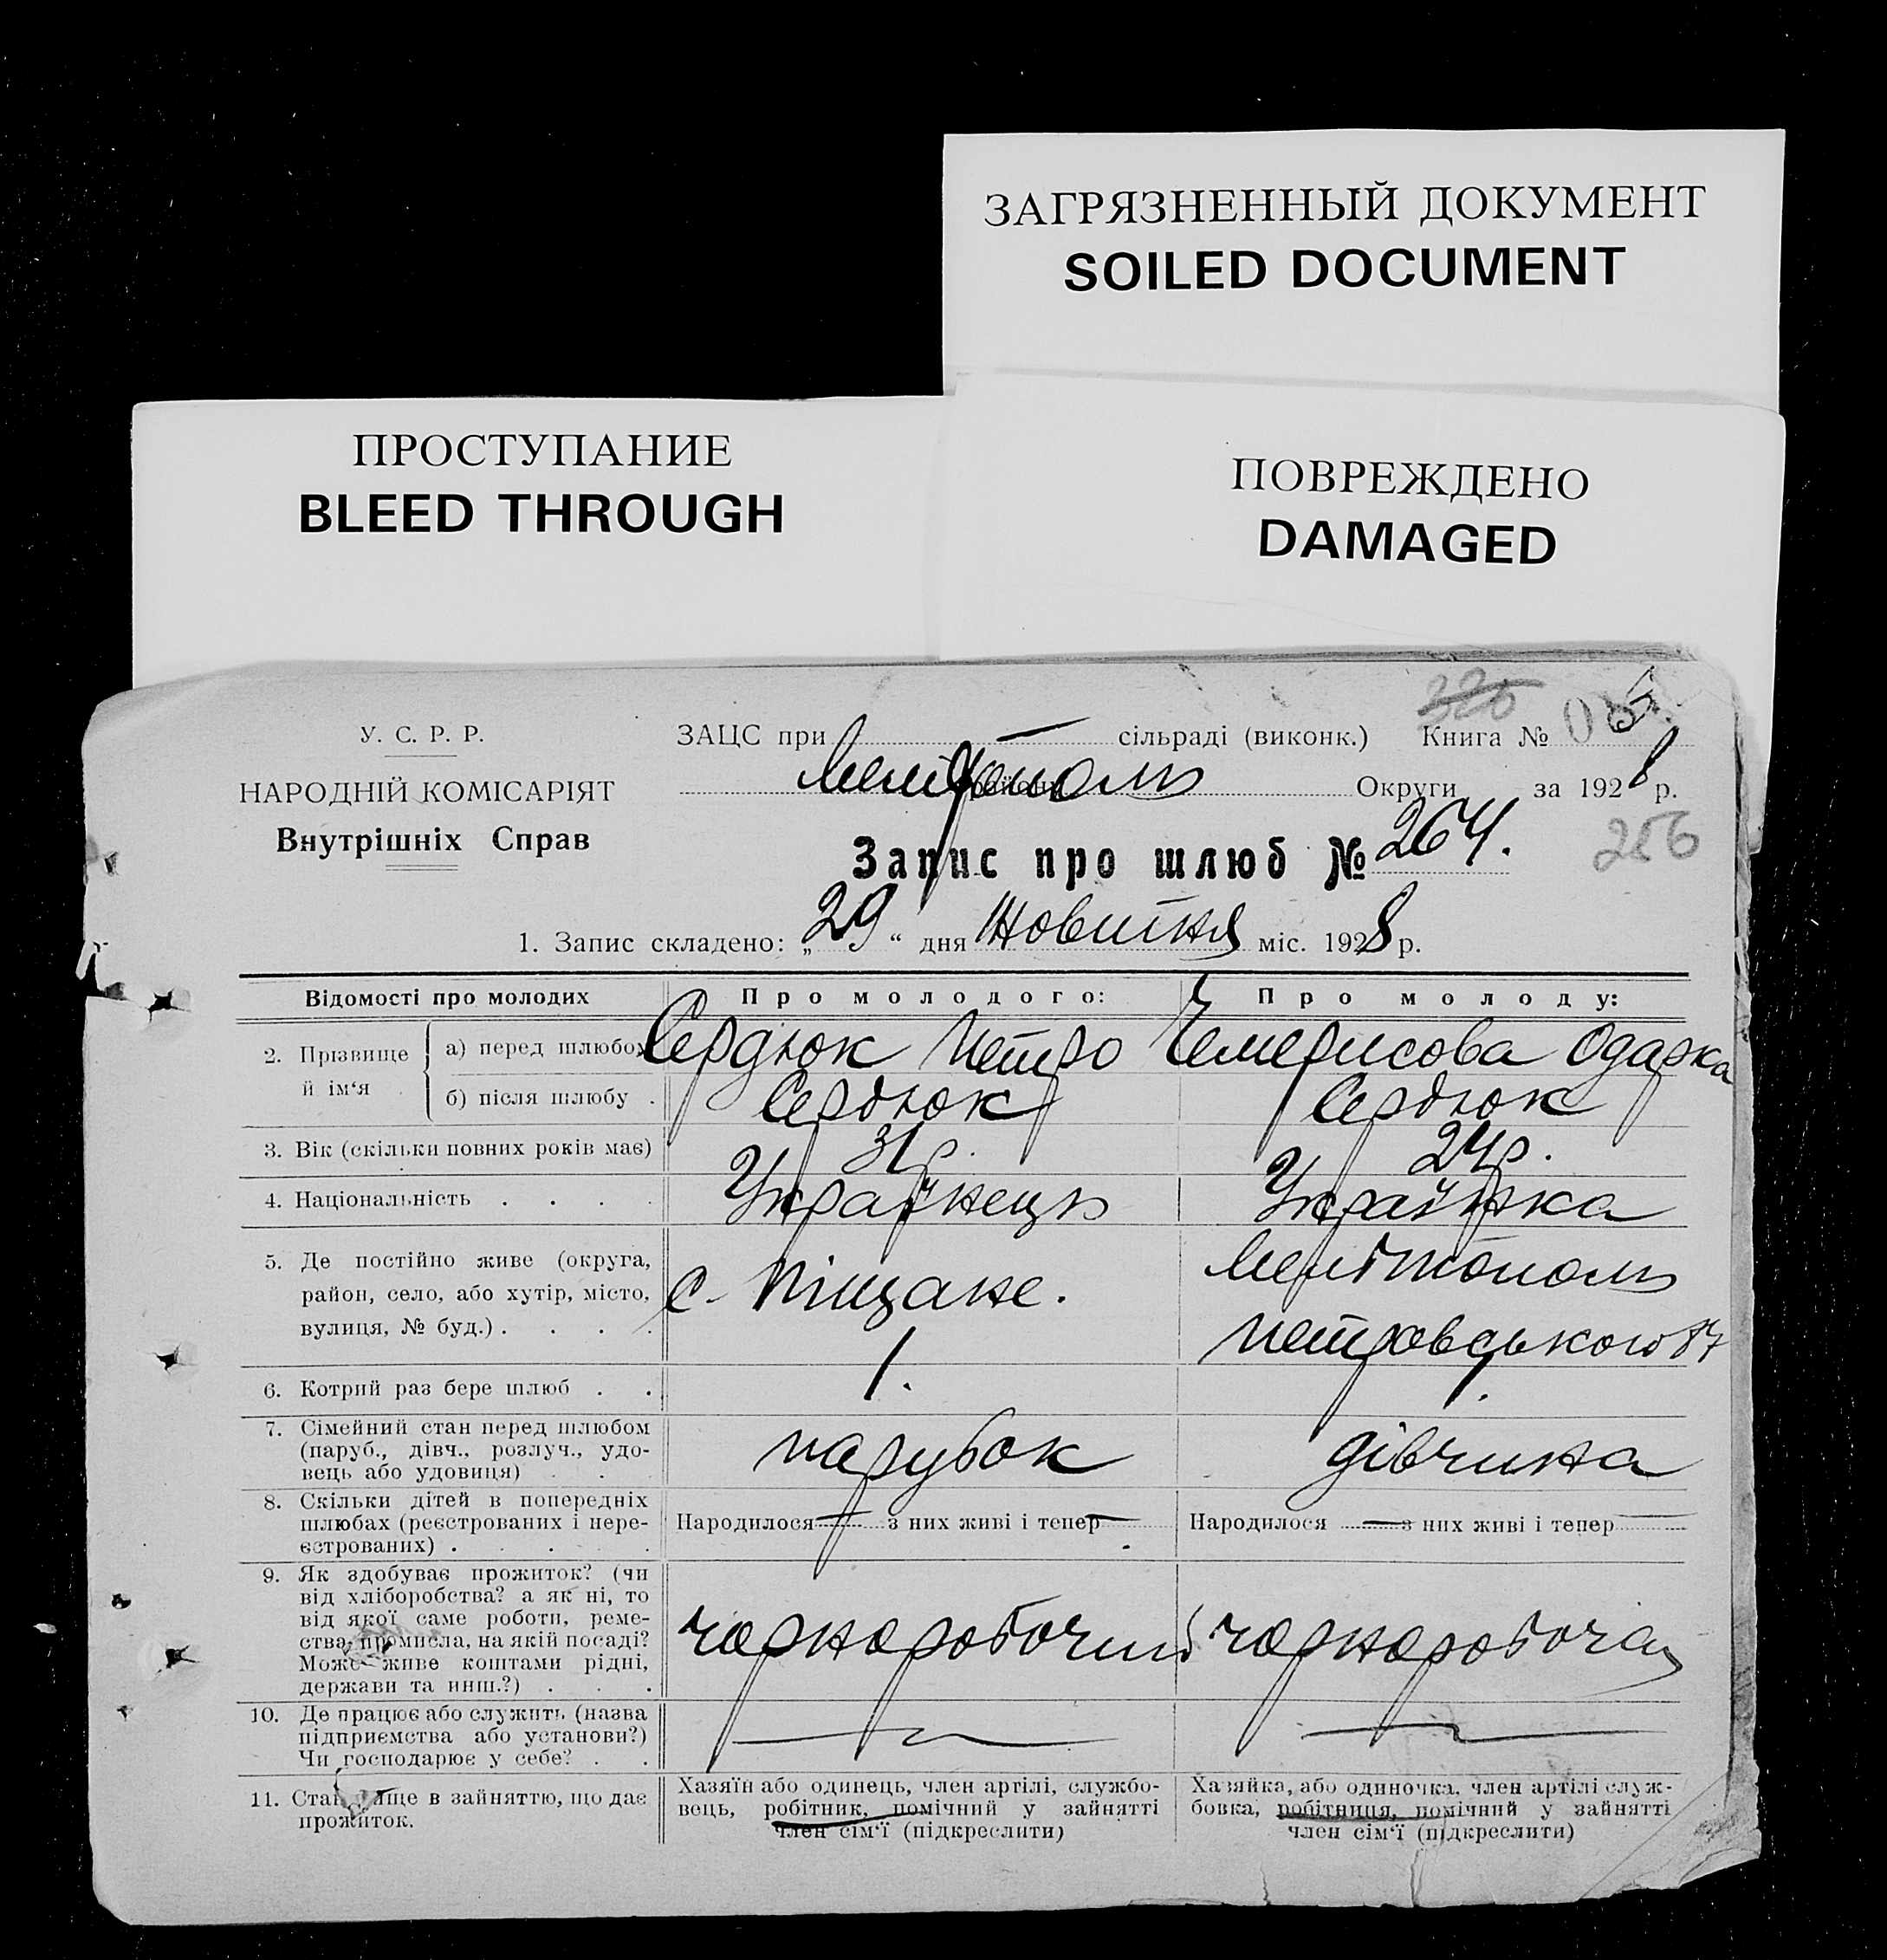 ЗАГРЯЗНЕННЫЙ ДОКУМЕНТ
SOILED DOCUMENT
ПРОСТУПАНИЕ
BLEED THROUGH
ПОВРЕЖДЕНО
DAMAGED
326
У. С. Р. Р.
НАРОДНІЙ КОМІСАРІЯТ
Внутрішніх Справ
ЗАЦС при — сільраді (виконк.) Книга №
Округи за 1928 р.
Запис про шлюб № 264.
256
1. Запис складено: „29“ дня Жовтня міс. 1928 р.
Відомості про молодих Про молодого: Про молоду:
2. Прізвище й ім‘я а) перед шлюбом Сердюк Петро Чемерисова Одарка
б) після шлюбу . Сердюк Сердюк
3. Вік (скільки повних років має) 31 р. 24 р.
4. Національність . . . . Українець Українка
5. Де постійно живе (округа,
район, село, або хутір, місто,
вулиця, № буд.) . . . .
с. Піщане.
Мелітополь
Петровського 87
6. Котрий раз бере шлюб . . 1. 1.
7. Сімейний стан перед шлюбом
(паруб., дівч., розлуч., удо-
вець або удовиця) . .
парубок дівчина
8. Скільки дітей в попередніх
шлюбах (реєстрованих і нере-
єстрованих) . . . .
Народилося — з них живі і тепер — Народилося — з них живі і тепер —
9. Як здобуває прожиток? (чи
від хліборобства? а як ні, то
від якої саме роботи, реме-
ства, промисла, на якій посаді?
Може живе коштами рідні,
держави та инш.?) . . .
чорноробочий чорноробоча
10. Де працює або служить (назва
підприємства або установи?)
Чи господарює у себе? . .
— —
11. Становище в зайняттю, що дає
прожиток.
Хазяїн або одинець, член артілі, службо-
вець, робітник, помічний у зайнятті
член сім‘ї (підкреслити)
Хазяйка, або одиночка, член артілі служ-
бовка, робітниця, помічний у зайнятті
член сім‘ї (підкреслити)